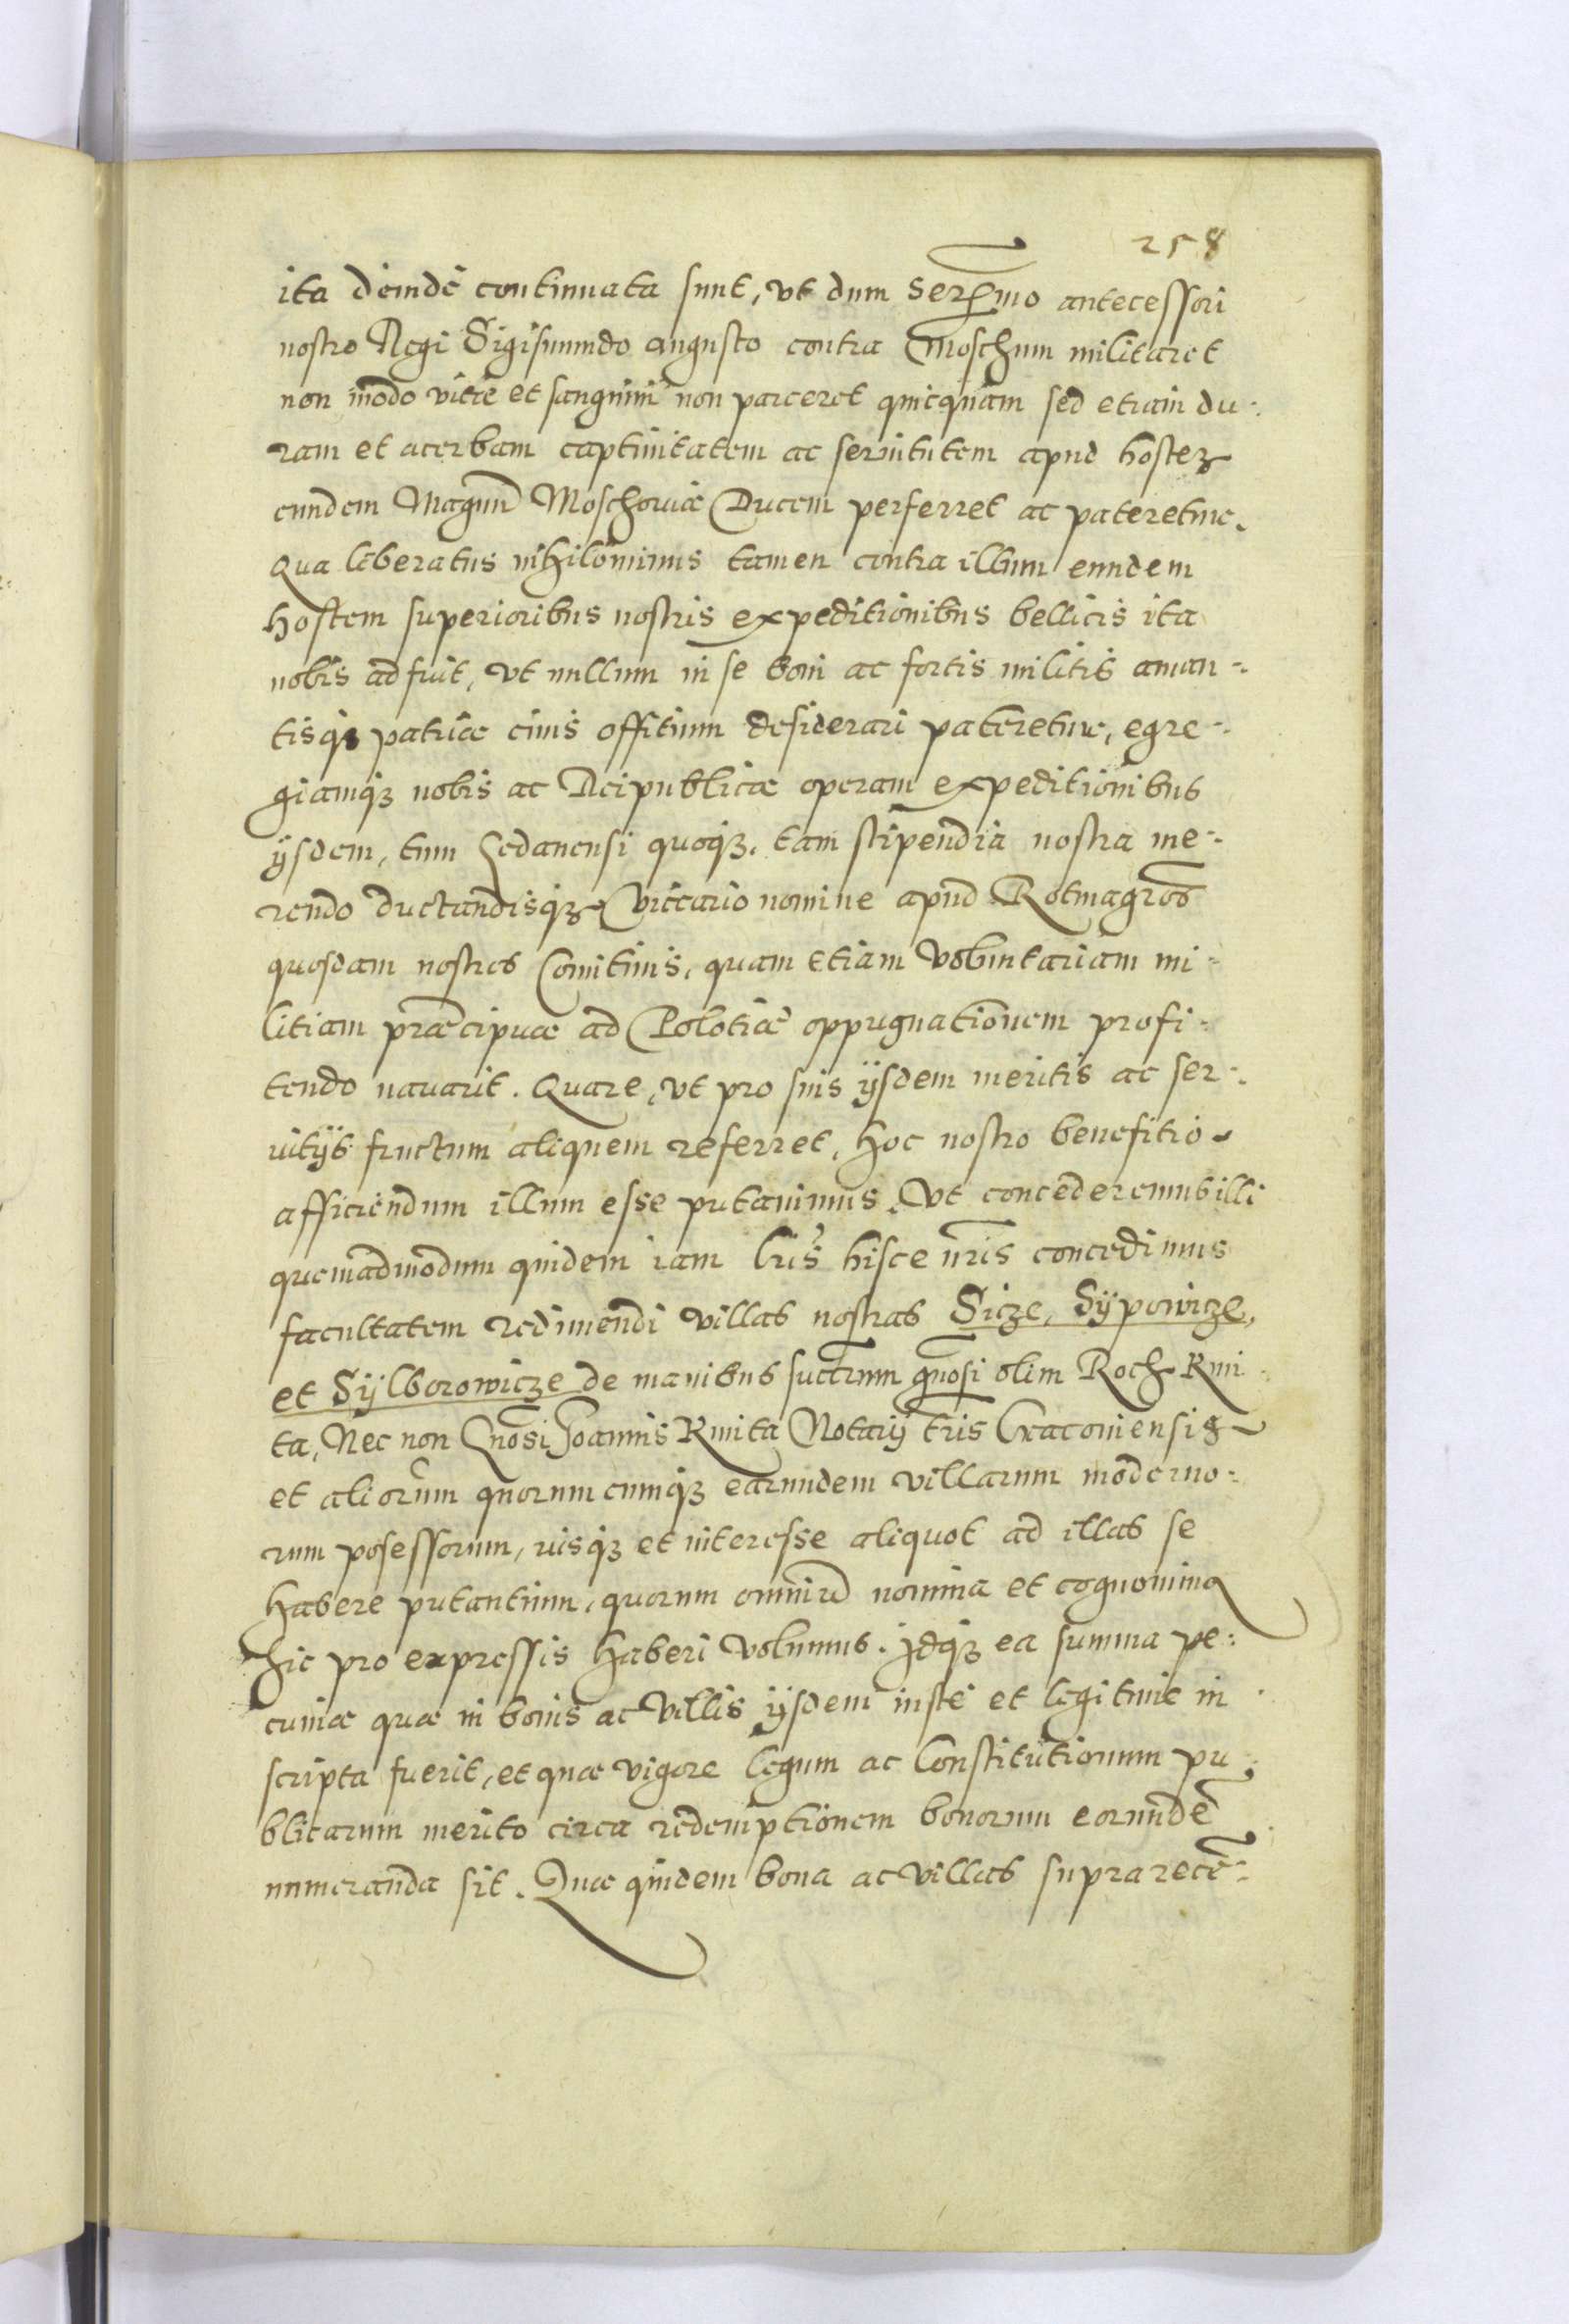 258
ita deindè continuata sunt, vt dum Serₑmo antecessori
nostro Regi Sigismundo augusto contra Moschum militaret
non modo vitæ et sanguini non parceret quicquam sed etiam du-
ram et acerbam captiuitatem ac seruitutem apud hostes
eundem Magnũ Moschouiæ Ducem perferret ac pateretur.
Qua liberatus nihilominus tamen contra illum eundem
hostem superioribus nostris expeditionibus bellicis ita
nobis adfuit, vt nullum in se boni ac fortis militis aman-
tisq; patriæ ciuis offitium desiderari pateretur, egre-
giamq; nobis ac Reipublicæ operam expeditionibus
ijsdem, tum Gedanensi quoq;. tam stipendia nostra me-
rendo ductandisq; Viccario nomine apud Rotmagros
quosdam nostros Comitiuis, quam etiam voluntariam mi-
litiam præcipuæ ad Polotiæ oppugnationem profi-
tendo nauarit. Quare, vt pro suis ijsdem meritis ac ser-
uitijs fructum aliquem referret, hoc nostro benefitio
afficiendum illum esse putauimus. Vt concederemus illi
quemadmodum quidem iam lris hisce nris concedimus
facultatem redimendi villas nostras Sicze, Sÿpowicze,
et Sÿlborowicze de manibus succrum gnosi olim Roch Kmi-
ta, Nec non Gnosi Joannis Kmita Notarij tris Cracouiensis
et aliorum quorumcumq; earundem villarum moderno-
rum posessorum, iusq; et interesse aliquot ad illas se
habere putantium, quorum omniũ nomina et cognomina
hic pro expressis haberi volumus. Idq; ea summa pe-
cuniæ quæ in bonis ac villis ijsdem iustè et legitimè in
scripta fuerit, et quæ vigore legum ac Constitutionum pu-
blicarum merito circa redemptionem bonorum eorundẽ
numeranda sit. Quæ quidem bona ac villas suprarecẽ-